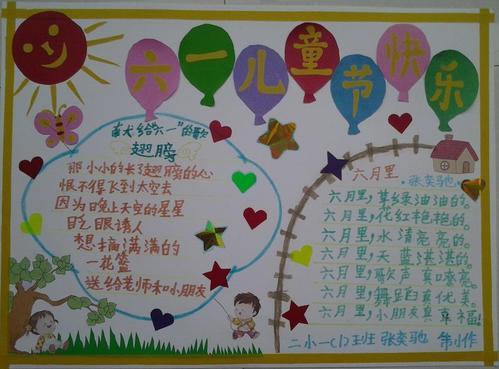 六一儿童节快乐
献给六一"的歌
翅膀
那小小的长翅膀的心
恨不得飞到太空去
因为晚上天空的星星
眨眼诱人
想摘满满的
一花篮
送给老师和小朋友
六月里
张奕驰
六月里,草绿油油的。
六月里,花红艳艳的。
六月里,水清亮亮的。
六月里,天蓝湛湛的。
六月里,歌声真嘹亮。
六月里,舞蹈真优美。
六月里,小朋友真幸福!
二小一(1)班 张奕驰 制作